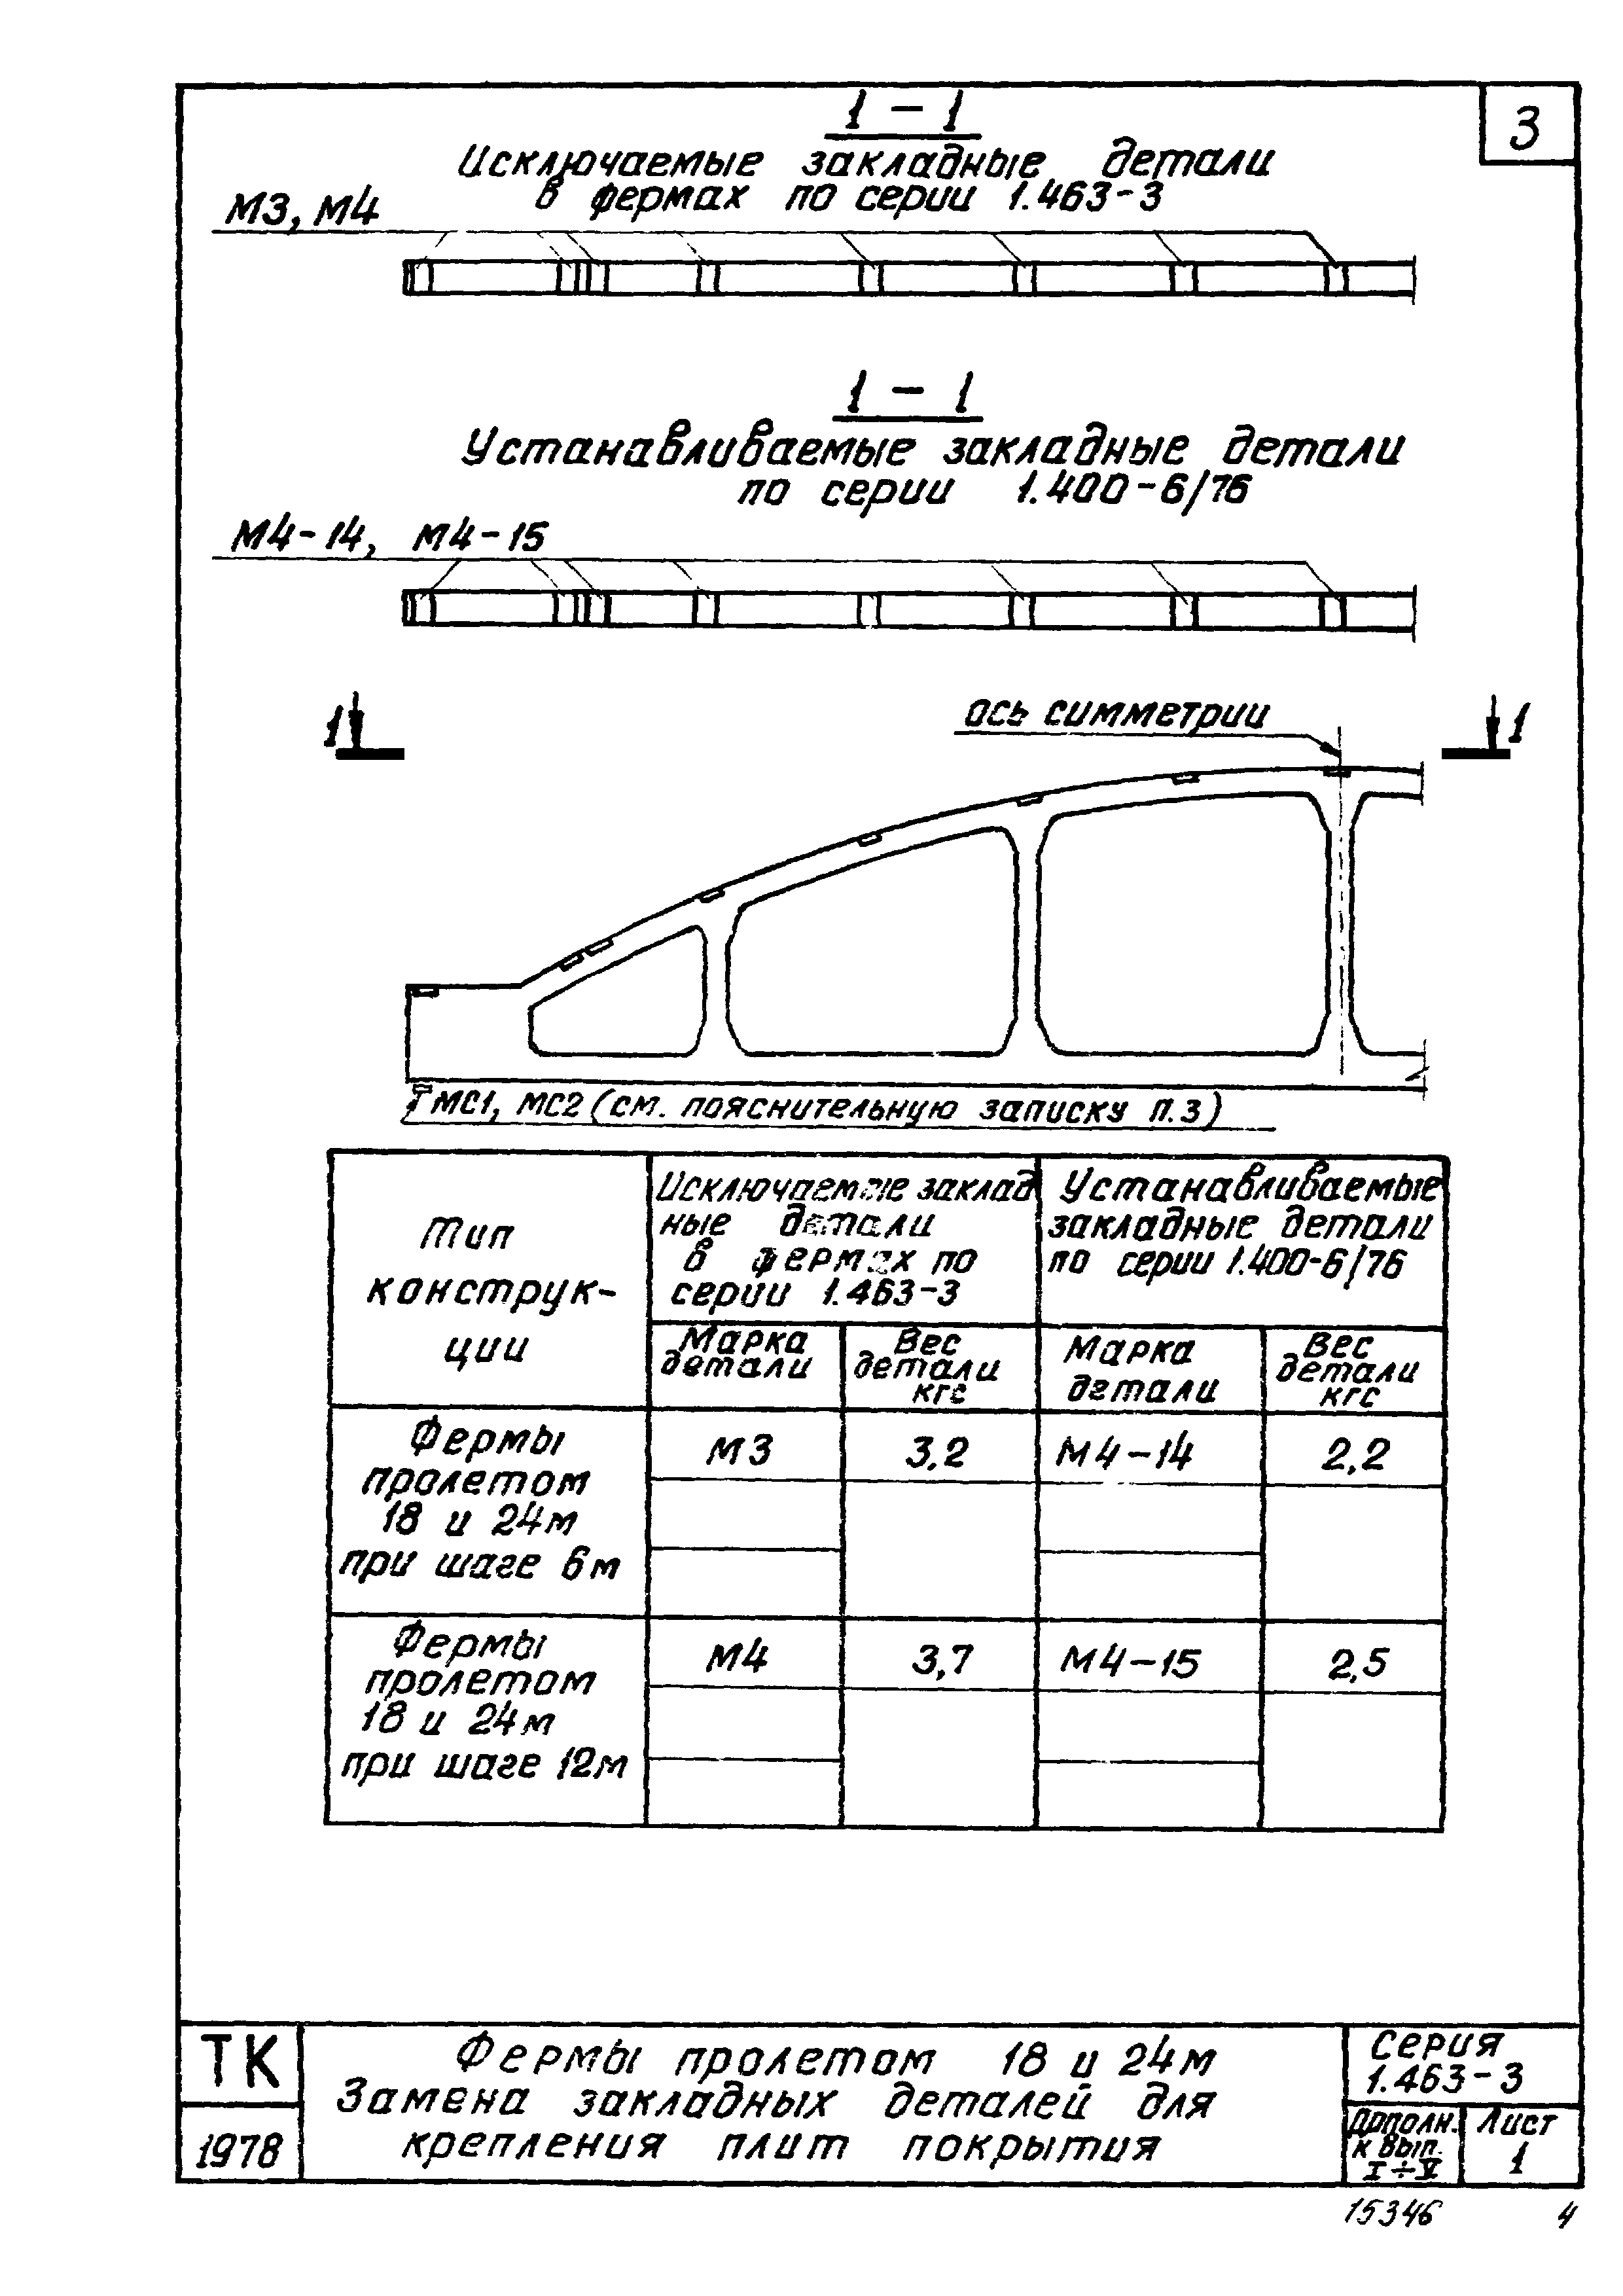 3
1 – 1
Исключаемые закладные детали
в фермах по серии 1.463-3
М3, М4
1 – 1
Устанавливаемые закладные детали
по серии 1.400-6/76
М4-14, М4-15
1
ось симметрии
1
МС1, МС2 (см. пояснительную записку п.3)
Тип
конструк-
ции
Исключаемые заклад
ные детали
в фермах по
серии 1.463-3
Устанавливаемые
закладные детали
по серии 1.400-6/76
Марка
детали
Вес
детали
кгс
Марка
детали
Вес
детали
кгс
Фермы
пролетом
18 и 24м
при шаге 6м
М3
3,2
М4-14
2,2
Фермы
пролетом
18 и 24м
при шаге 12м
М4
3,7
М4-15
2,5
ТК
1978
Фермы пролетом 18 и 24м
Замена закладных деталей для
крепления плит покрытия
Серия
1.463-3
Дополн.
к вып.
I÷V
Лист
1
15346
4